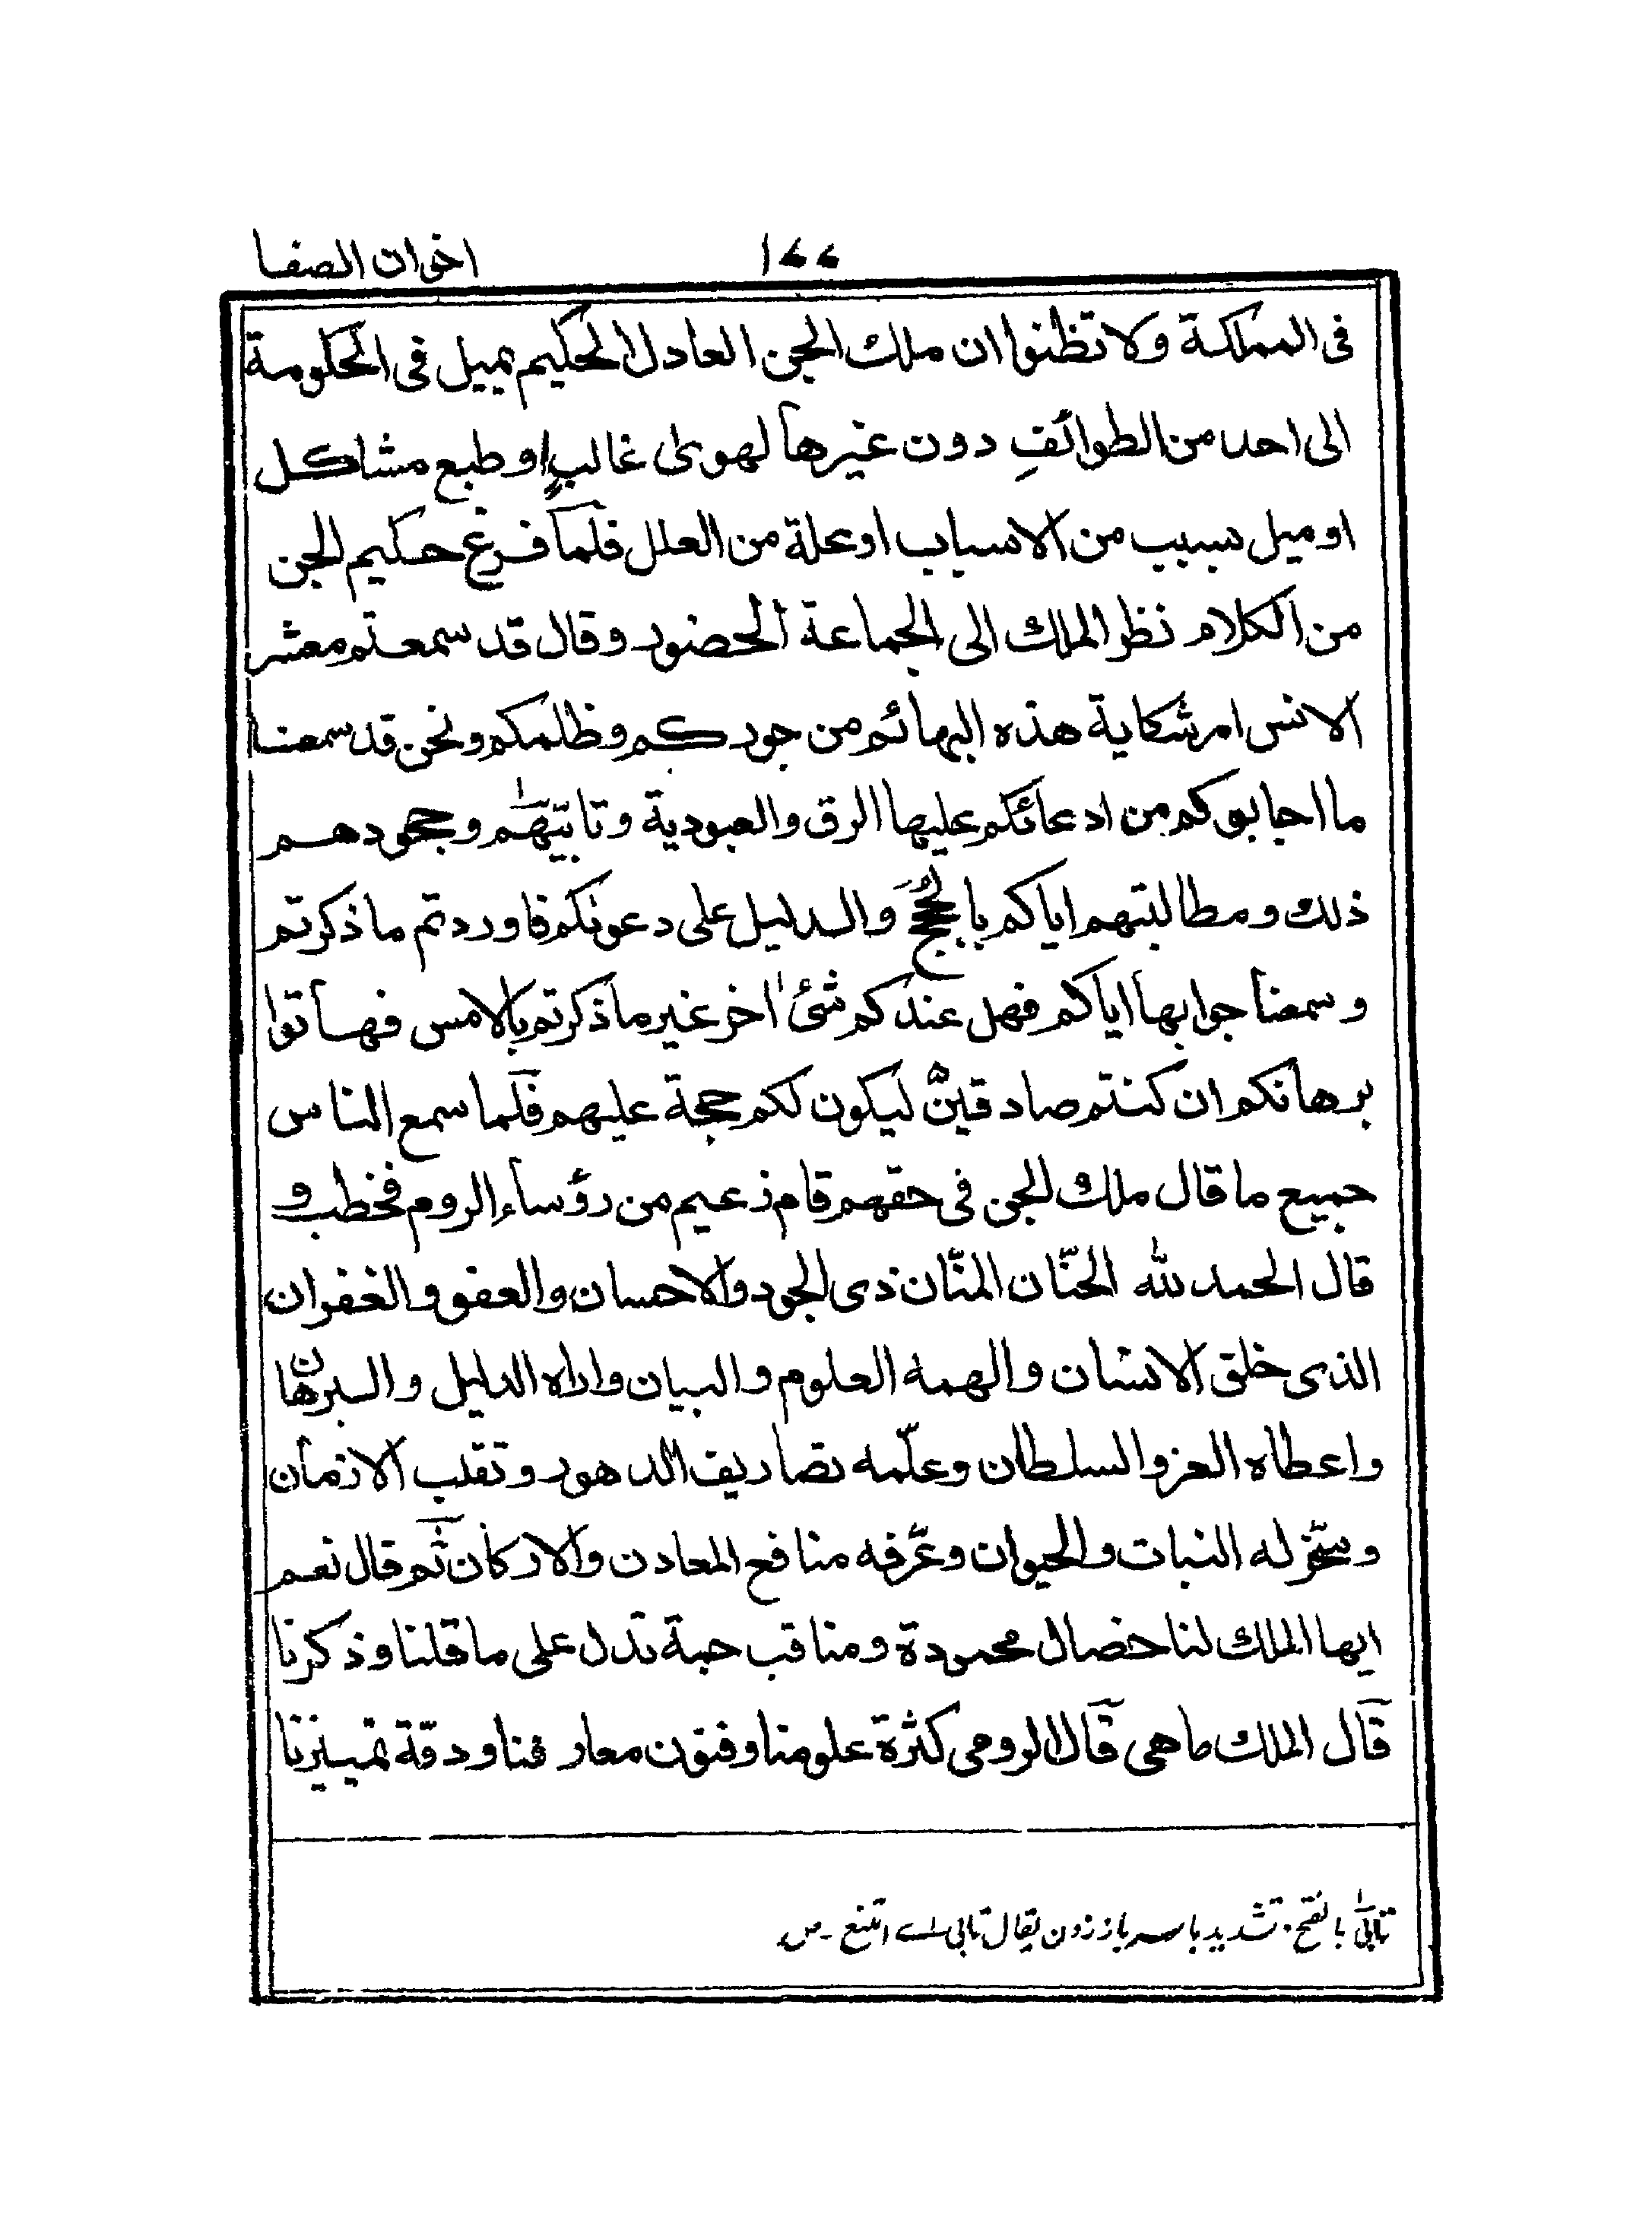 اخوان الصفا ١٧٧
فی المملكة ولا تظنوا ان ملك الجن العادل الحكيم يميل فی الحكومة
الی احد من الطوائفِ دون غيرها لهوی غالبٍ او طبع مشاكل
او ميل بسبب من الاسباب او علة من العلل فلما فرغ حكيم الجن
من الكلام نظر الملك الی الجماعة الحضور وقال قد سمعتم معشر
الانس امر شكاية هذه البهائم من جوركم وظلمكم ونحن قد سمعنا
ما اجابوكم من ادعائكم عليها الرق والعبودية وتابيّهم وجحودهم
ذلك ومطالبتهم اياكم بالحُجَج والدليل علی دعونكم فاوردتم ما ذكرتم
وسمعنا جوابها اياكم فهل عندكم شیٔ اخر غير ما ذكرتم بالامس فهاتوا
برهانكم ان كنتم صادقين ليكون لكم حجة عليهم فلما سمع الناس
جميع ما قال ملك الجن فی حقهم قام زعيم من رؤساء الروم فخطب و
قال الحمد لله الحنّان المنّان ذی الجود والاحسان والعفو والغفران
الذی خلق الانسان والهمه العلوم والبيان واراه الدليل والبرهان
واعطاه العز والسلطان وعلّمه تصاريف الدهور وتقلب الازمان
وسخّر له النبات والحيوان وعرّفه منافع المعادن والاركان ثم قال نعم
ايها الملك لنا خصال محمودة ومناقب جمة تدل علی ما قلنا وذكرنا
قال الملك ما هی قال الرومی كثرة علومنا وفنون معارفنا ودقة تمييزنا
تابیّ بالفتح تشديد با سر باز زدن يقال تابی اے امتنع ـ ص